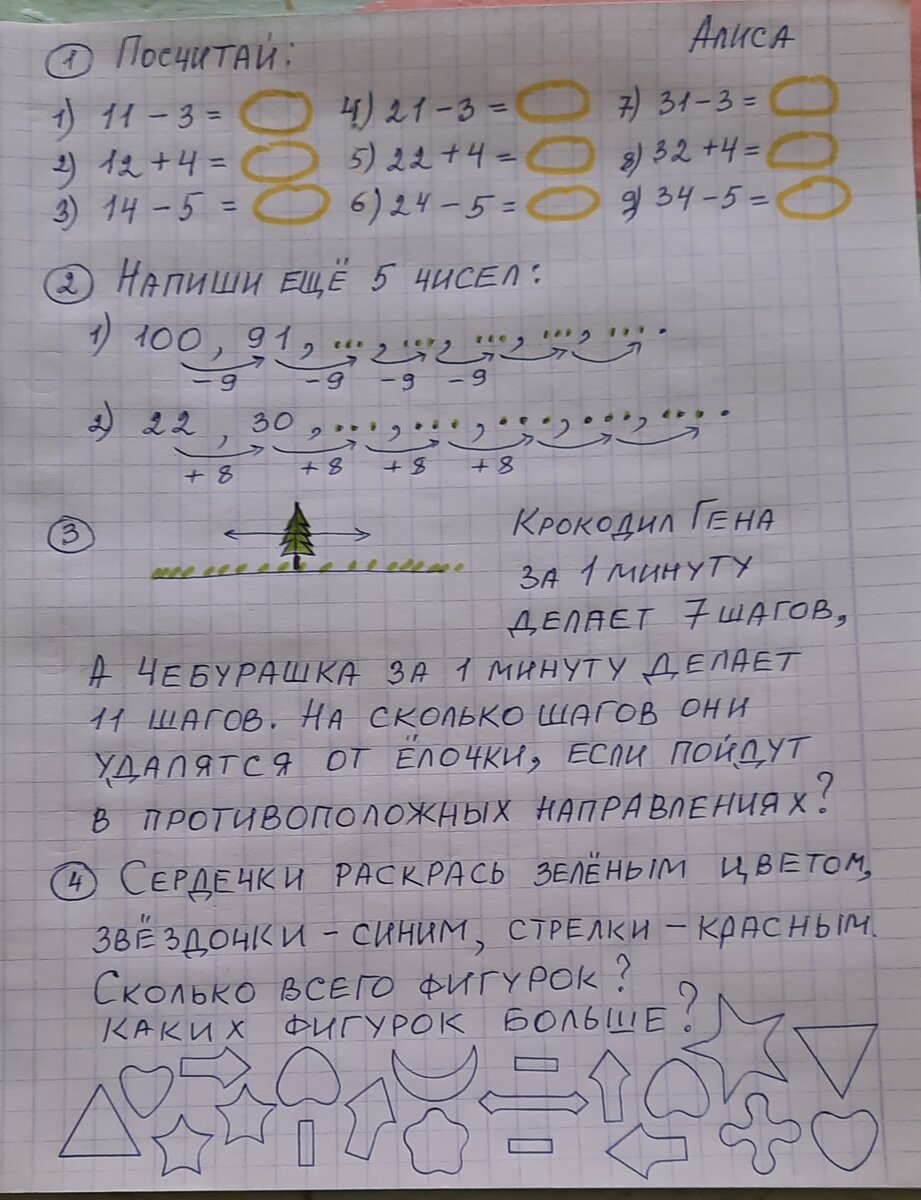 ① Посчитай: Алиса
1) 11 – 3 = 4) 21 – 3 = 7) 31 – 3 =
2) 12 + 4 = 5) 22 + 4 = 8) 32 + 4 =
3) 14 – 5 = 6) 24 – 5 = 9) 34 – 5 =
② Напиши ещё 5 чисел:
1) 100, 91, ..., ..., ..., ..., ... .
–9 –9 –9 –9
2) 22, 30, ..., ..., ..., ..., ... .
+8 +8 +8 +8
③ Крокодил Гена
за 1 минуту
делает 7 шагов,
а Чебурашка за 1 минуту делает
11 шагов. На сколько шагов они
удалятся от ёлочки, если пойдут
в противоположных направлениях?
④ Сердечки раскрась зелёным цветом,
звёздочки – синим, стрелки – красным.
Сколько всего фигурок?
Каких фигурок больше?